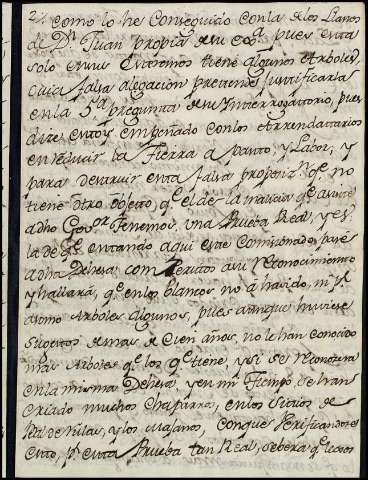 como lo he Conseguido con la de los Llanos
de Dn. Juan propia de su pues esta
solo en sus Extremos tiene algunos Arboles,
cuia falsa alegacion pretende justificarla
en la 5a. pregunta de su Interrogatorio, pues
dize estoy empeñado con los Arrendattarios
en reducir la Tierra a pasto, y Labor, y
para destruir esta falsa qe. no
tiene otro objeto, qe. el de la malicia qe. asiste
a dho Govor. tenemos una Prueba Real, y es
la de qe. estando aqui este Comisionado, pase
a dha Dehesa con Perito a su Reconocimiento
y hallará, qe. en los blancos no á havido, ni
Arboles algunos, pues aunque huviese
Sugetos de mas de Cien años, no le han Conocido
mas Arboles qe. los qe. tiene, y si se reconociera
en la misma Dehesa, y en mi Tiempo, se han
criado muchos chaparros, en los sitios de
y los Majanos, conque Verificandose
esto, pr. esta Prueba tan Real, se berá qe.